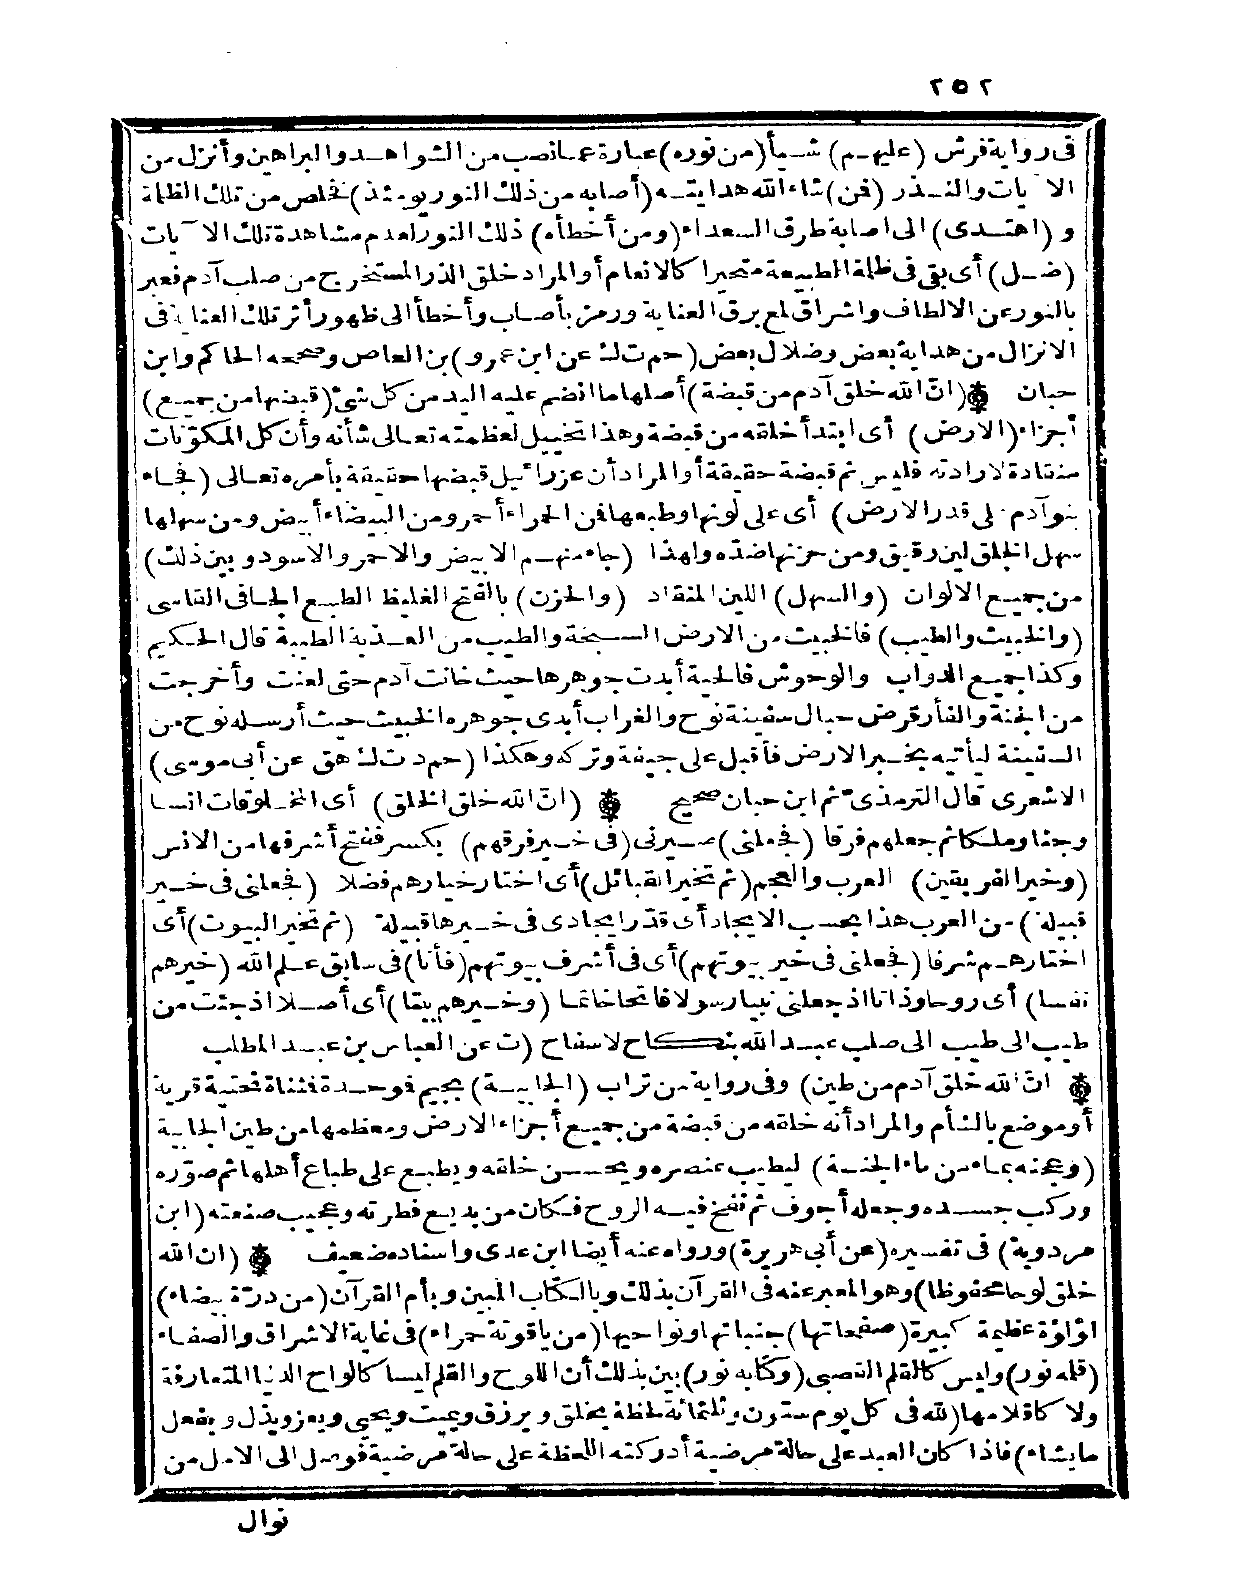 ٢٥٢
فى رواية فرش (عليهم) شيأ (من نوره) عبارة عما نصب من الشواهد والبراهين وأنزل من
الآيات والنذر (فمن) شاء الله هدايته (أصابه من ذلك النور يومئذ) فخلص من تلك الظلمة
و (اهتدى) الى اصابة طرق السعداء (ومن أخطأه) ذلك النور لعدم مشاهدة تلك الآيات
(ضل) أى بقى فى ظلمة الطبيعة متحيرا كالانعام أو المراد خلق الذر المستخرج من صلب آدم فعبر
بالنور عن الالطاف واشراق لمع برق العناية ورمز بأصاب وأخطأ الى ظهور أثر تلك العناية فى
الانزال من هداية بعض وضلال بعض (حم ت ك عن ابن عمرو) بن العاص وصححه الحاكم وابن
حبان ۞ (انّ الله خلق آدم من قبضة) أصلها ما انضم عليه اليد من كل شئ (قبضها من جميع)
أجزاء (الارض) أى ابتدأ خلقه من قبضة وهذا تخييل لعظمته تعالى شأنه وأن كل المكوّنات
منقادة لارادته فليس ثم قبضة حقيقة أو المراد أن عزرائيل قبضها حقيقة بأمره تعالى (فجاء
بنو آدم على قدر الارض) أى على لونها وطبعها فمن الحمراء أحمر ومن البيضاء أبيض ومن سهلها
سهل الخلق لين رقيق ومن حزنها ضده ولهذا (جاء منهم الابيض والاحمر والاسود وبين ذلك)
من جميع الالوان (والسهل) اللين المنقاد (والحزن) بالفتح الغليظ الطبع الجافى القاسى
(والخبيث والطيب) فالخبيث من الارض السبخة والطيب من العذبة الطيبة قال الحكيم
وكذا جميع الدواب والوحوش فالحية أبدت جوهرها حيث خانت آدم حتى لعنت وأخرجت
من الجنة والفأر قرض حبال سفينة نوح والغراب أبدى جوهره الخبيث حيث أرسله نوح من
السفينة ليأتيه بخبر الارض فأقبل على جيفة وتركه وهكذا (حم د ت ك هق عن أبى موسى)
الاشعرى قال الترمذى ثم ابن حبان صحيح ۞ (انّ الله خلق الخلق) أى المخلوقات انسا
وجنا وملكا ثم جعلهم فرقا (فجعلنى) صيرنى (فى خير فرقهم) بكسر ففتح أشرفها من الانس
(وخير الفريقين) العرب والعجم (ثم تخير القبائل) أى اختار خيارهم فضلا (فجعلنى فى خير
قبيلة) من العرب هذا بحسب الايجاد أى قدّر ايجادى فى خيرها قبيلة (ثم تخير البيوت) أى
اختارهم شرفا (فجعلنى فى خير بيوتهم) أى فى أشرف بيوتهم (فأنا) فى سابق علم الله (خيرهم
نفسا) أى روحا وذاتا اذ جعلنى نبيا رسولا فاتحا خاتما (وخيرهم بيتا) أى أصلا اذ جئت من
طيب الى طيب الى صلب عبد الله بنكاح لا سفاح (ت عن العباس بن عبد المطلب
۞ انّ الله خلق آدم من طين) وفى رواية من تراب (الجابية) بجيم فوحدة فمثناة تحتية قرية
أو موضع بالشأم والمراد أنه خلقه من قبضة من جميع أجزاء الارض ومعظمها من طين الجابية
(وعجنه بماء من ماء الجنة) ليطيب عنصره ويحسن خلقه ويطبع على طباع أهلها ثم صوّره
وركب جسده وجعله أجوف ثم نفخ فيه الروح فكان من بديع فطرته وعجيب صنعته (ابن
مردوية) فى تفسيره (عن أبى هريرة) ورواه عنه أيضا ابن عدى واسناده ضعيف ۞ (ان الله
خلق لوحا محفوظا) وهو المعبر عنه فى القرآن بذلك وبالكتاب المبين وبأم القرآن (من درّة بيضاء)
لؤلؤة عظيمة كبيرة (صفحاتها) جنباتها ونواحيها (من ياقوتة حمراء) فى غاية الاشراق والصفاء
(قلمه نور) وليس كالقلم القصبى (وكتابه نور) بين بذلك أن اللوح والقلم ليسا كالواح الدنيا المتعارفة
ولا كاقلامها (لله فى كل يوم ستون وثلثمائة لحظة يخلق ويرزق ويميت ويحيى ويعز ويذل ويفعل
ما يشاء) فاذا كان العبد على حالة مرضية أدركته اللحظة على حالة مرضية فوصل الى الامل من
نوال